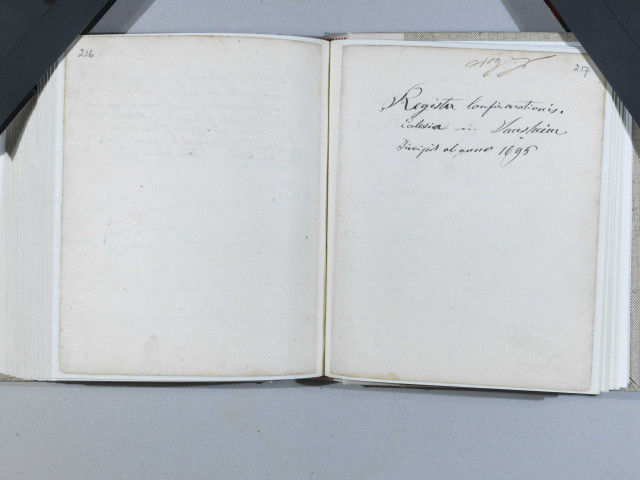 216
217
Register Confirmationis.
Ecclesia in
Incipit ab anno 1695